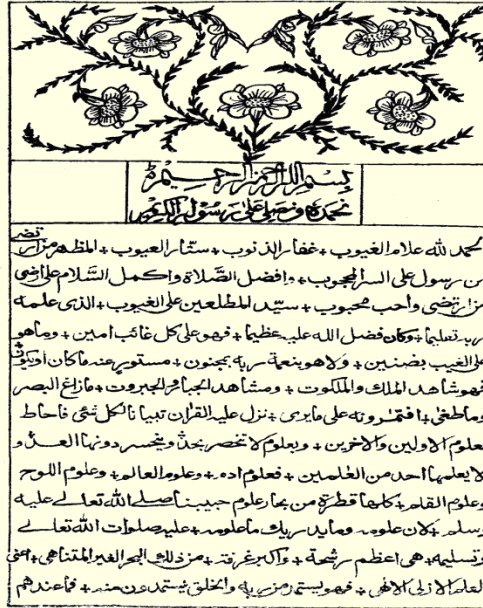 بسم الله الرحمن الرحيم
نحمده ونصلی علی رسوله الكريم
الحمد لله علام الغيوب + غفار الذنوب + ستار العيوب + المظهر من ارتضى
من رسول على السر المحجوب + وافضل الصلاة واكمل السلام على ارضى
من ارتضى واحب محبوب + سيد المطلعين على الغيوب + الذى علمه
ربه تعليما + وكان فضل الله عليه عظيما + فهو على كل غائب امين + وماهو
على الغيب بضنين + ولا هو بنعمة ربه بمجنون + مستور عنه ما كان او يكون +
فهو شاهد الملك والملكوت + ومشاهد الجبار والجبروت + مازاغ البصر
وماطغى + افتمٰرونه على مايرى + نزل عليه القران تبيانا لكل شئ فاحاط
بعلوم الاولين والاخرين + وبعلوم لا تنحصر بحد وينحسر دونها العد و
لا يعلمها احد من العٰلمين + فعلوم ادم + وعلوم العالم + وعلوم اللوح
وعلوم القلم + كلها قطرة من بحار علوم حبيبنا صلى الله تعالى عليه
وسلم + لان علومه وما يدريك ما علومه + عليه صلوات الله تعالى
وتسليمه + هى اعظم رشحة + واكبر غرفة + من ذلك البحر الغير المتناهى + اعنى
العلم الازلى الالهى + فهو يستمد من ربه والخلق يستمدون منه + فما عندهم